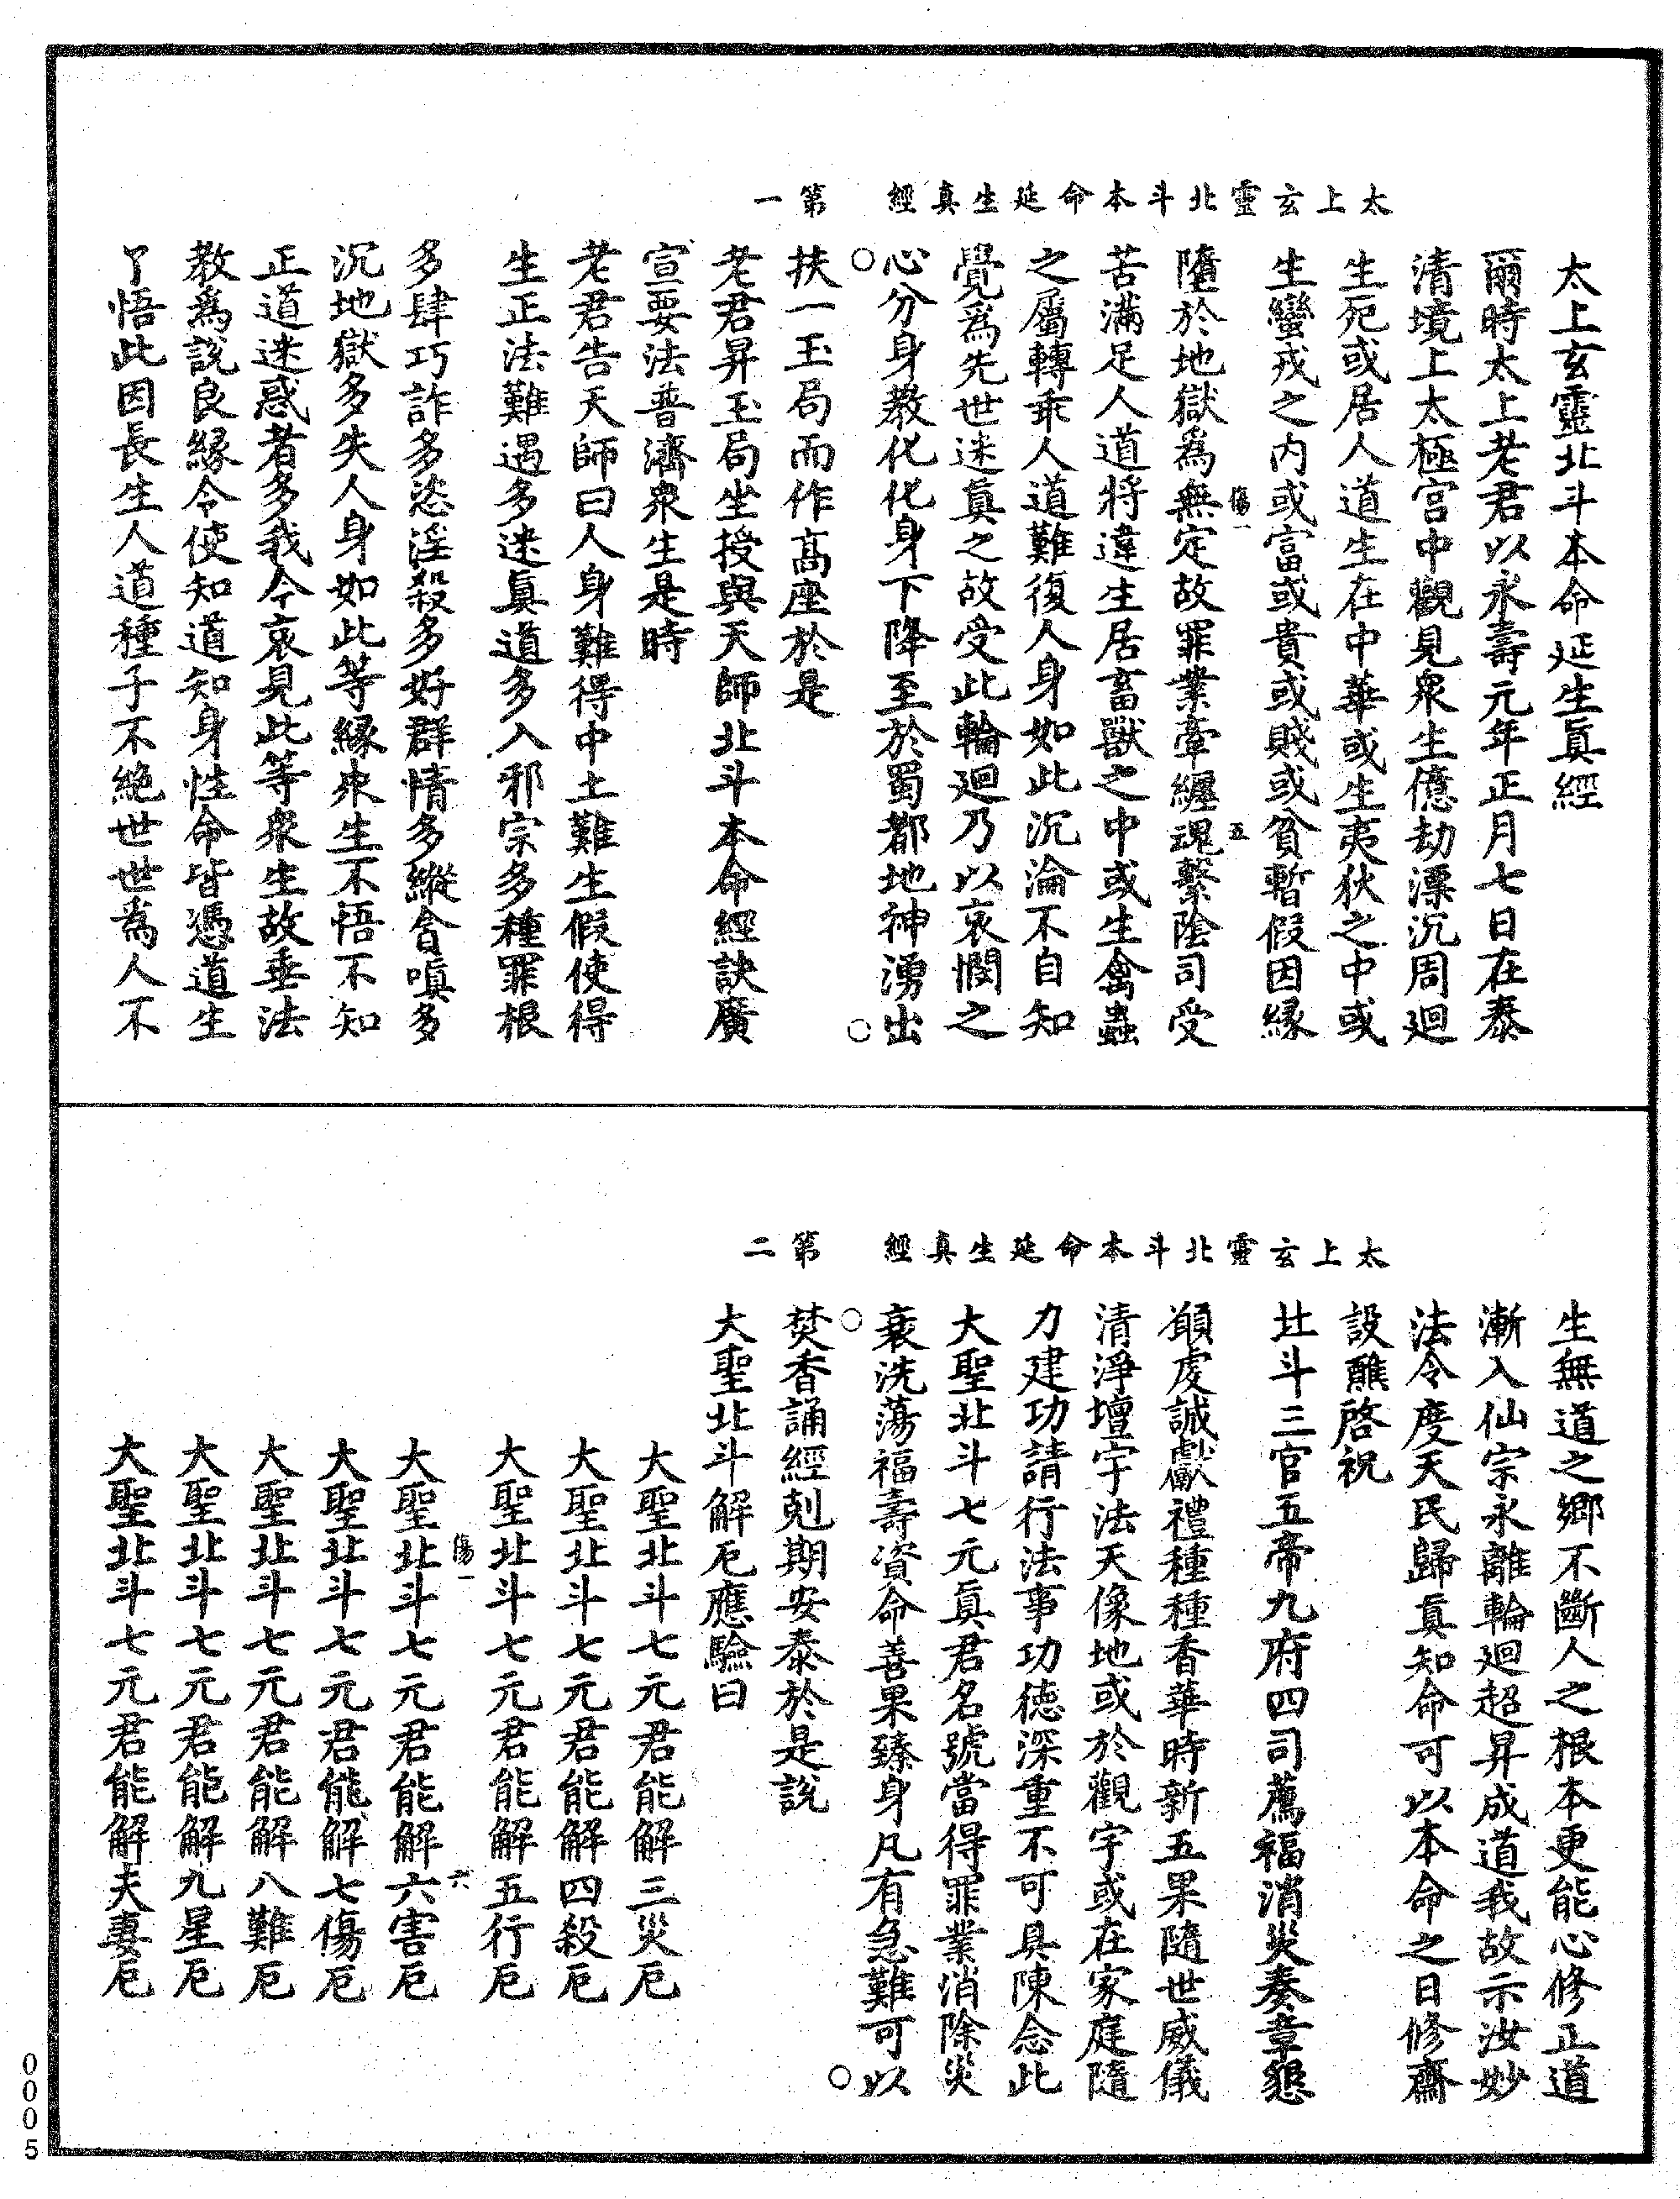 太上玄靈北斗本命延生真經　第一
太上玄靈北斗本命延生眞經
爾時太上老君以永壽元年正月七日在泰
清境上太極宫中觀見衆生億劫漂沉周廻
生死或居人道生在中華或生夷狄之中或
生蠻戎之内或富或貴或賤或貧暫假因縁
傷一　五
墮於地獄爲無定故罪業牽纏魂繫陰司受
苦滿足人道將違生居畜獸之中或生禽蟲
之屬轉乖人道難復人身如此沉淪不自知
覺爲先世迷眞之故受此輪廻乃以哀憫之
心分身教化化身下降至於蜀都地神湧出
扶一玉局而作髙座於是
老君昇玉局坐授與天師北斗本命經訣廣
宣要法普濟衆生是時
老君告天師曰人身難得中土難生假使得
生正法難遇多迷眞道多入邪宗多種罪根
多肆巧詐多恣淫殺多好群情多縱貪嗔多
沉地獄多失人身如此等縁衆生不悟不知
正道迷惑者多我今哀見此等衆生故垂法
教爲說良縁令使知道知身性命皆憑道生
了悟此因長生人道種子不絶世世爲人不
太上玄靈北斗本命延生真經　第二
生無道之鄉不斷人之根本更能心修正道
漸入仙宗永離輪廻超昇成道我故示汝妙
法令度天民歸眞知命可以本命之日修齋
設醮啓祝
北斗三官五帝九府四司薦福消災奏章懇
願虔誠獻禮種種香華時新五果隨世威儀
清淨壇宇法天像地或於觀宇或在家庭隨
力建功請行法事功德深重不可具陳念此
大聖北斗七元眞君名號當得罪業消除災
衰洗蕩福壽資命善果臻身凡有急難可以
焚香誦經剋期安泰於是說
大聖北斗解厄應驗曰
大聖北斗七元君能解三災厄
大聖北斗七元君能解四殺厄
大聖北斗七元君能解五行厄
傷一　六
大聖北斗七元君能解六害厄
大聖北斗七元君能解七傷厄
大聖北斗七元君能解八難厄
大聖北斗七元君能解九星厄
大聖北斗七元君能解夫妻厄
00005